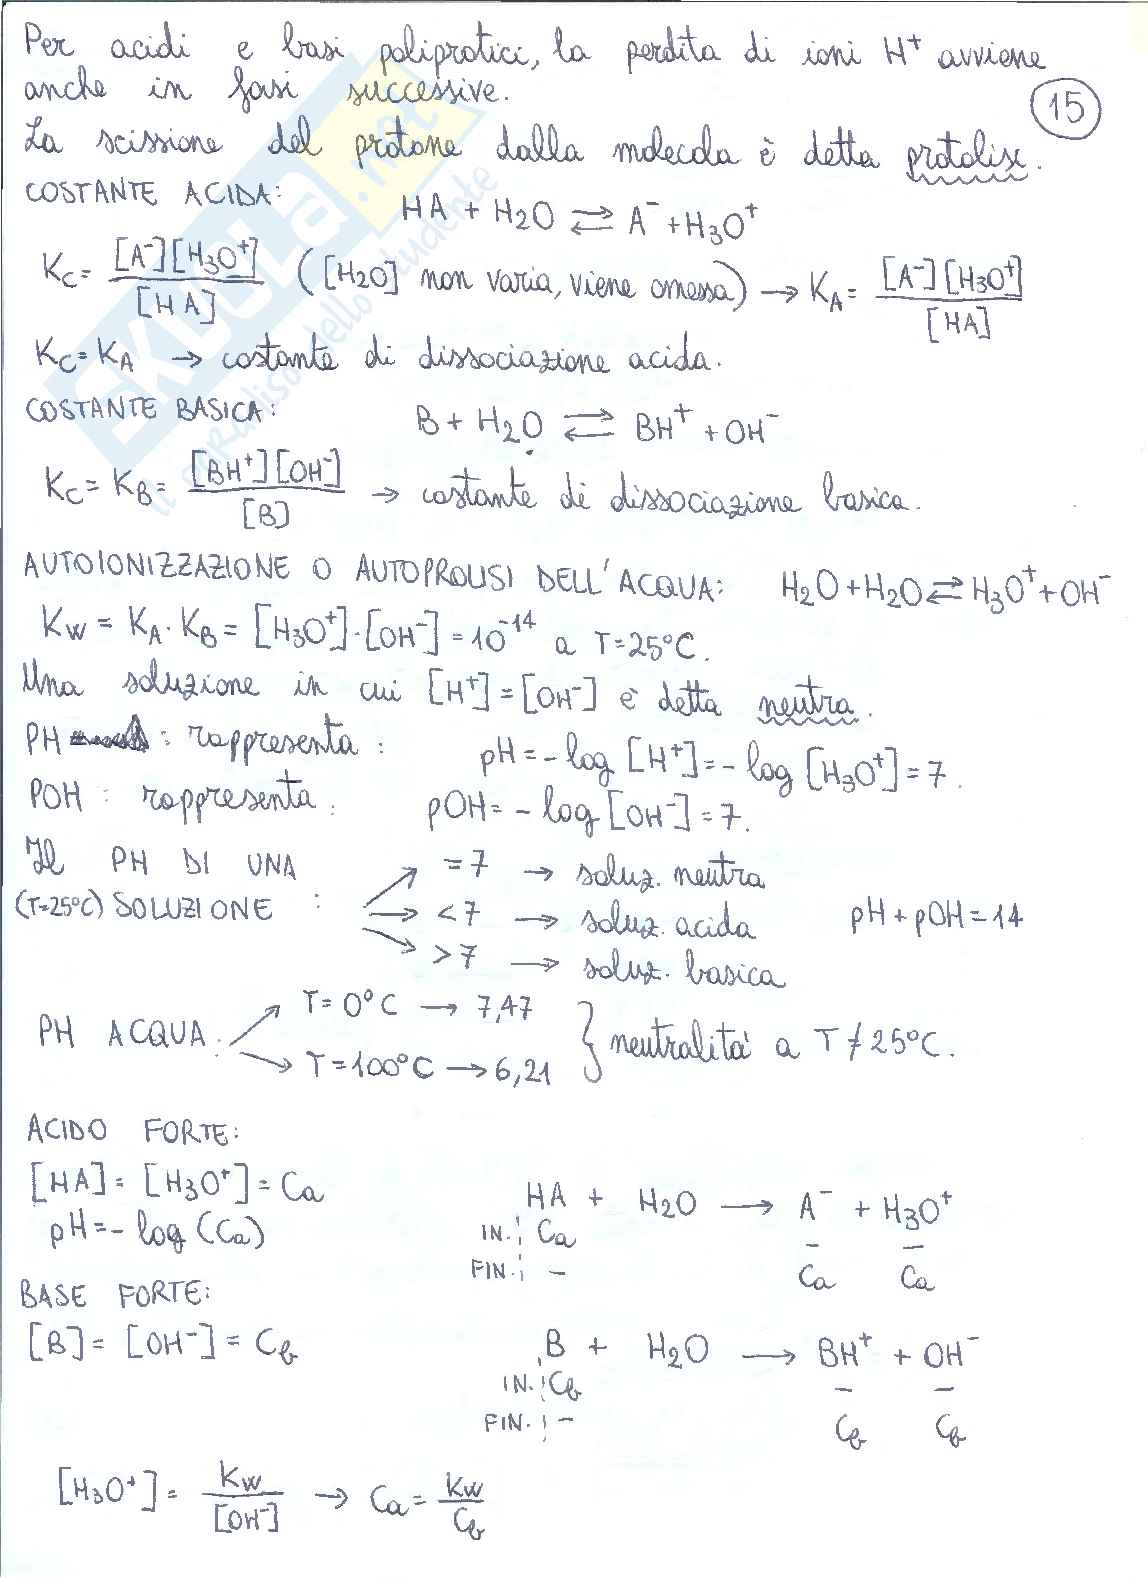 Per acidi e basi poliprotici, la perdita di ioni H⁺ avviene
anche in fasi successive.
15
La scissione del protone dalla molecola è detta protolisi.
COSTANTE ACIDA: HA + H2O ⇄ A⁻ + H3O⁺
Kc = [A⁻][H3O⁺] / [HA] ([H2O] non varia, viene omessa) → KA = [A⁻][H3O⁺] / [HA]
Kc = KA → costante di dissociazione acida.
COSTANTE BASICA: B + H2O ⇄ BH⁺ + OH⁻
Kc = KB = [BH⁺][OH⁻] / [B] → costante di dissociazione basica.
AUTOIONIZZAZIONE O AUTOPROLISI DELL'ACQUA: H2O + H2O ⇄ H3O⁺ + OH⁻
Kw = KA · KB = [H3O⁺]·[OH⁻] = 10⁻¹⁴ a T=25°C.
Una soluzione in cui [H⁺] = [OH⁻] è detta neutra.
PH : rappresenta : pH = - log [H⁺] = - log [H3O⁺] = 7.
POH : rappresenta : pOH = - log [OH⁻] = 7.
Il PH DI UNA = 7 → soluz. neutra
(T=25°C) SOLUZIONE : < 7 → soluz. acida pH + pOH = 14
> 7 → soluz. basica
PH ACQUA : T = 0°C → 7,47
T = 100°C → 6,21 } neutralità a T ≠ 25°C.
ACIDO FORTE:
[HA] = [H3O⁺] = Ca HA + H2O → A⁻ + H3O⁺
pH = - log (Ca) IN. Ca - -
FIN. - Ca Ca
BASE FORTE:
[B] = [OH⁻] = Cb B + H2O → BH⁺ + OH⁻
IN. Cb - -
FIN. - Cb Cb
[H3O⁺] = Kw / [OH⁻] → Ca = Kw / Cb
SKUOLA.net
il paradiso dello studente